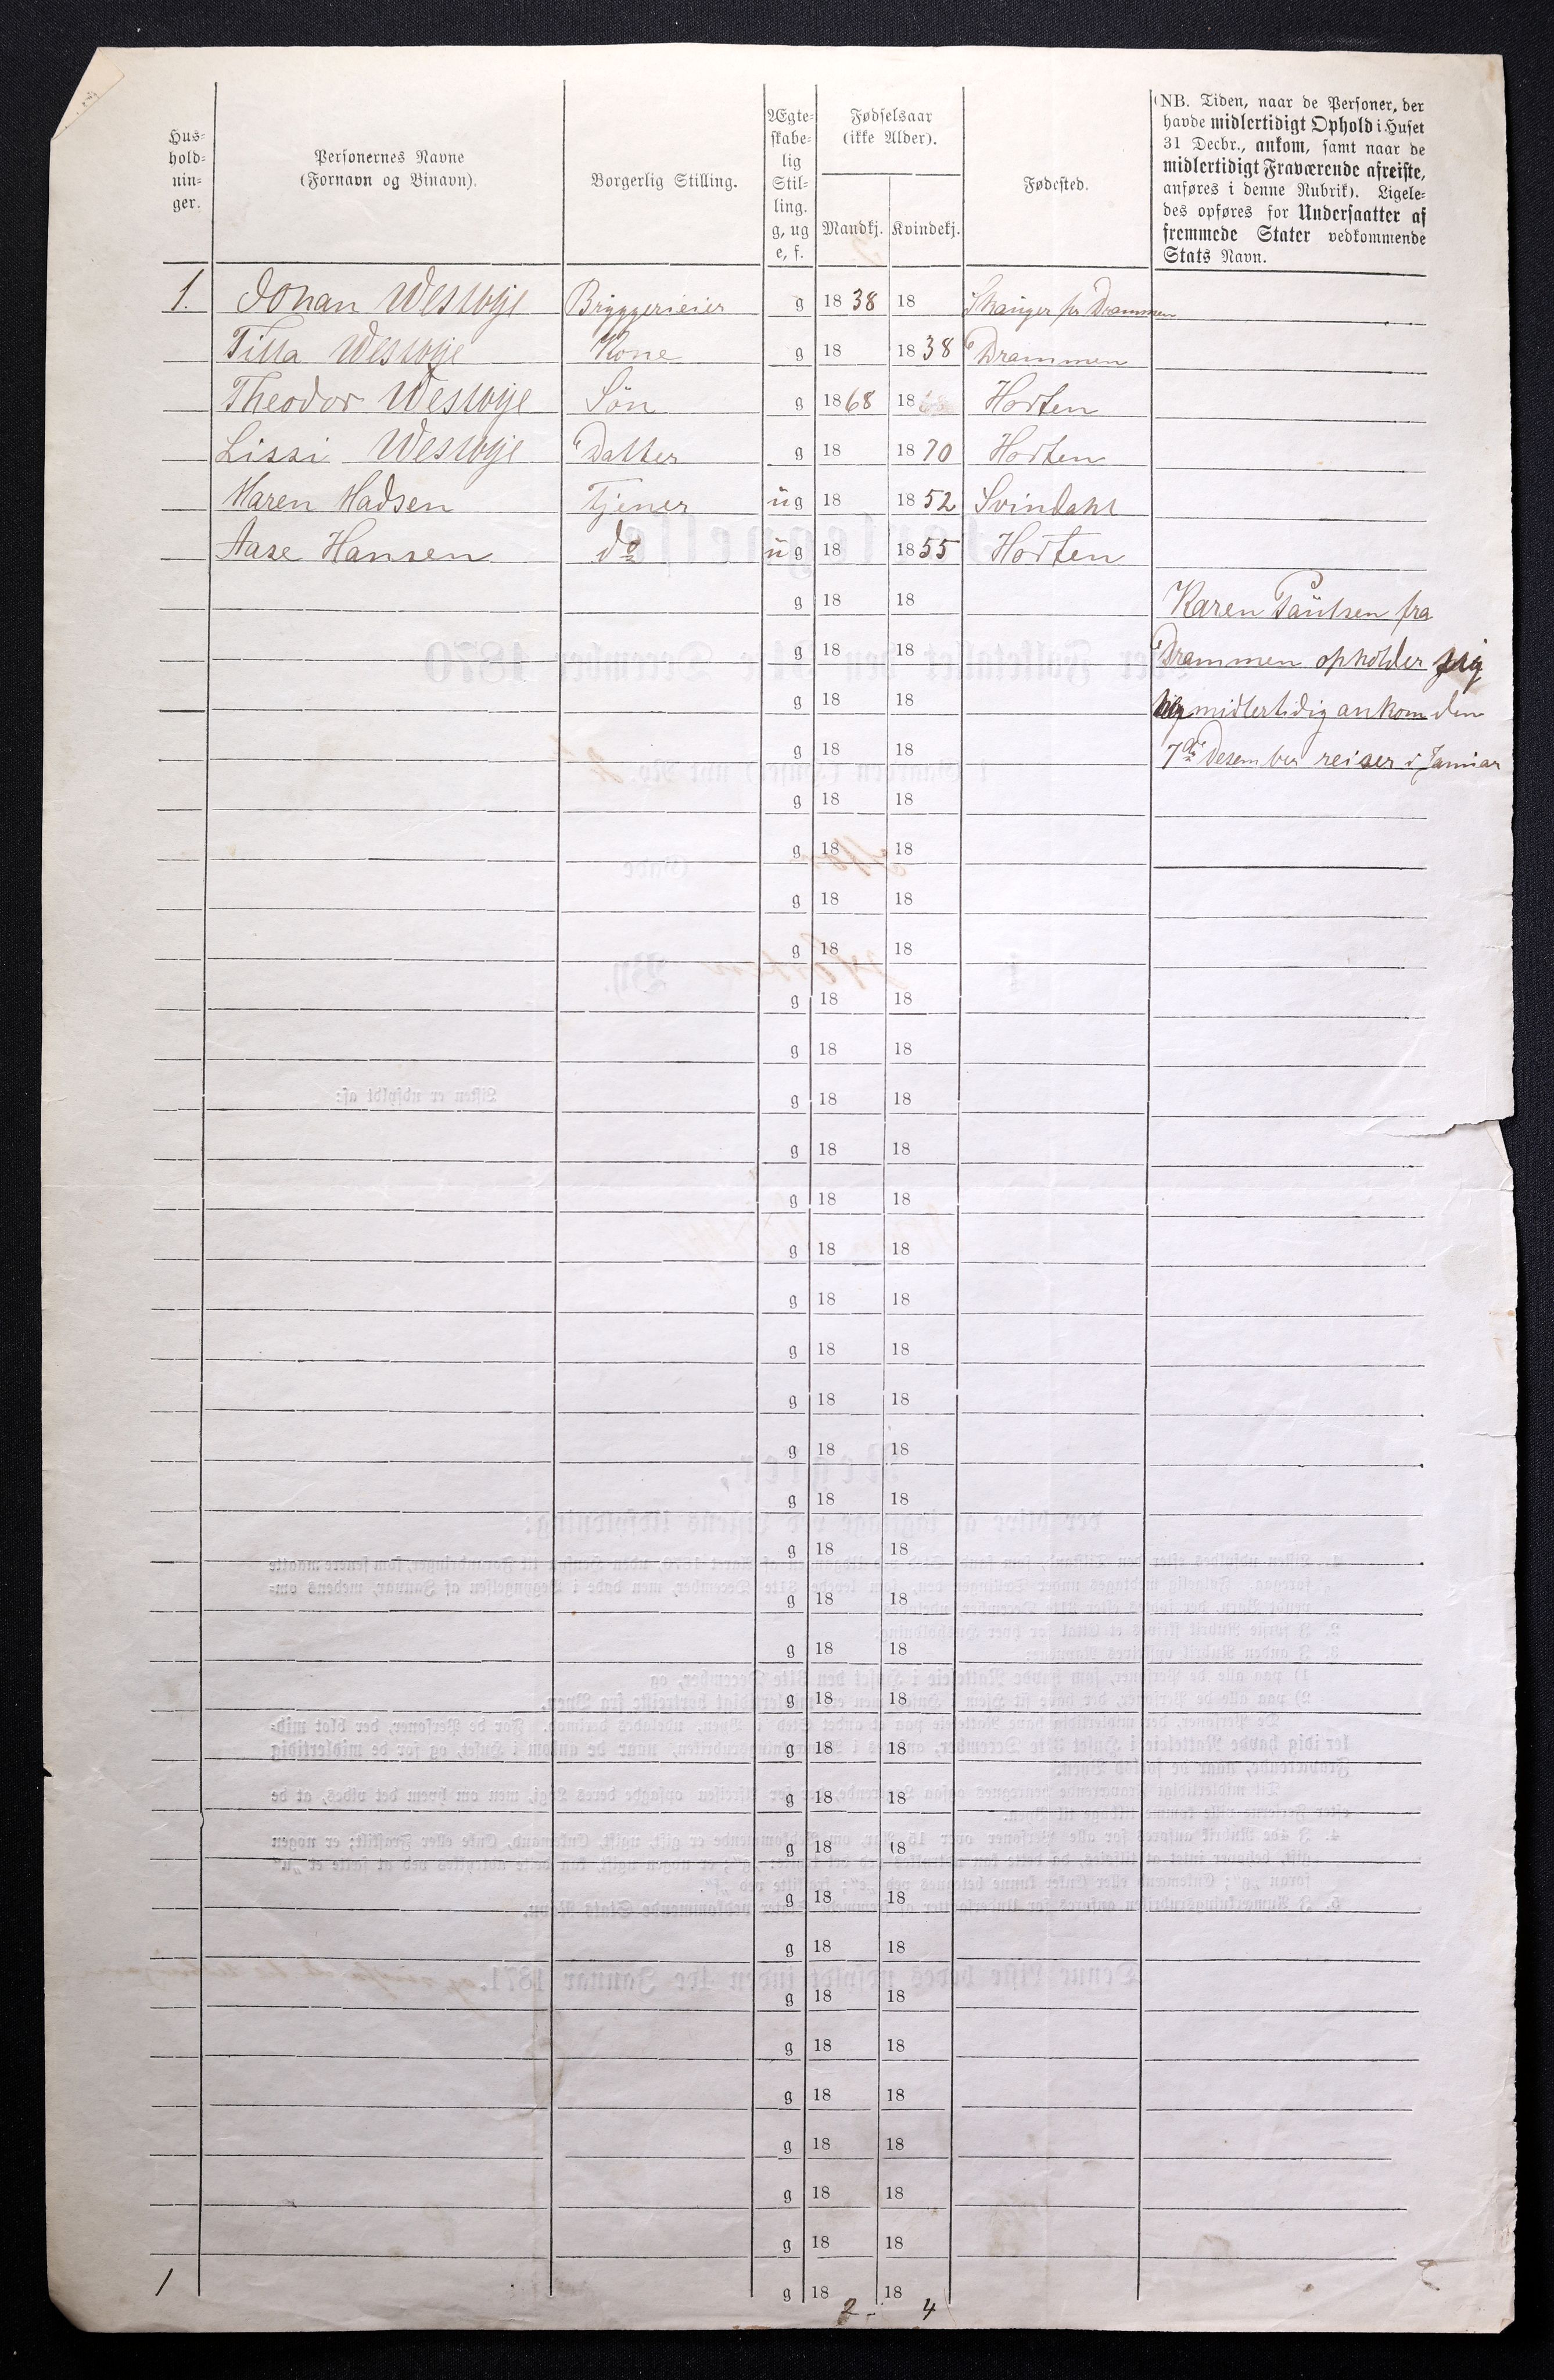 Hus-
hold-
nin-
ger.
Personernes Navne
(Fornavn og Binavn).
Borgerlig Stilling.
Ægte-
skabe-
lig
Stil-
ling.
g, ug
e, f.
Fødselsaar
(ikke Alder).
Mandkj. Kvindekj.
Fødested.
(NB. Tiden, naar de Personer, der
havde midlertidigt Ophold i Huset
31 Decbr., ankom, samt naar de
midlertidigt Fraværende afreiste,
anføres i denne Rubrik). Ligele-
des opføres for Undersaatter af
fremmede Stater vedkommende
Stats Navn.
1. Johan Westbye Bryggerieier g 1838 18 Drammen
Tilla Westbye Kone g 18 1838 Drammen
Theodor Westbye Sön g 1868 18 Horten
Lissi Westbye Datter g 18 1870 Horten
Maren Madsen Tjener ug 18 1852 Svindahl
Aase Hansen do ug 18 1855 Horten
g 18 18 Karen Paulsen fra
g 18 18 Drammen opholder sig
g 18 18 midlertidig ankom den
g 18 18 7de Desember reiser i Januar
g 18 18
g 18 18
g 18 18
g 18 18
g 18 18
g 18 18
g 18 18
g 18 18
g 18 18
g 18 18
g 18 18
g 18 18
g 18 18
g 18 18
g 18 18
g 18 18
g 18 18
g 18 18
g 18 18
g 18 18
g 18 18
g 18 18
g 18 18
g 18 18
g 18 18
g 18 18
g 18 18
g 18 18
g 18 18
g 18 18
g 18 18
1 2 - 4